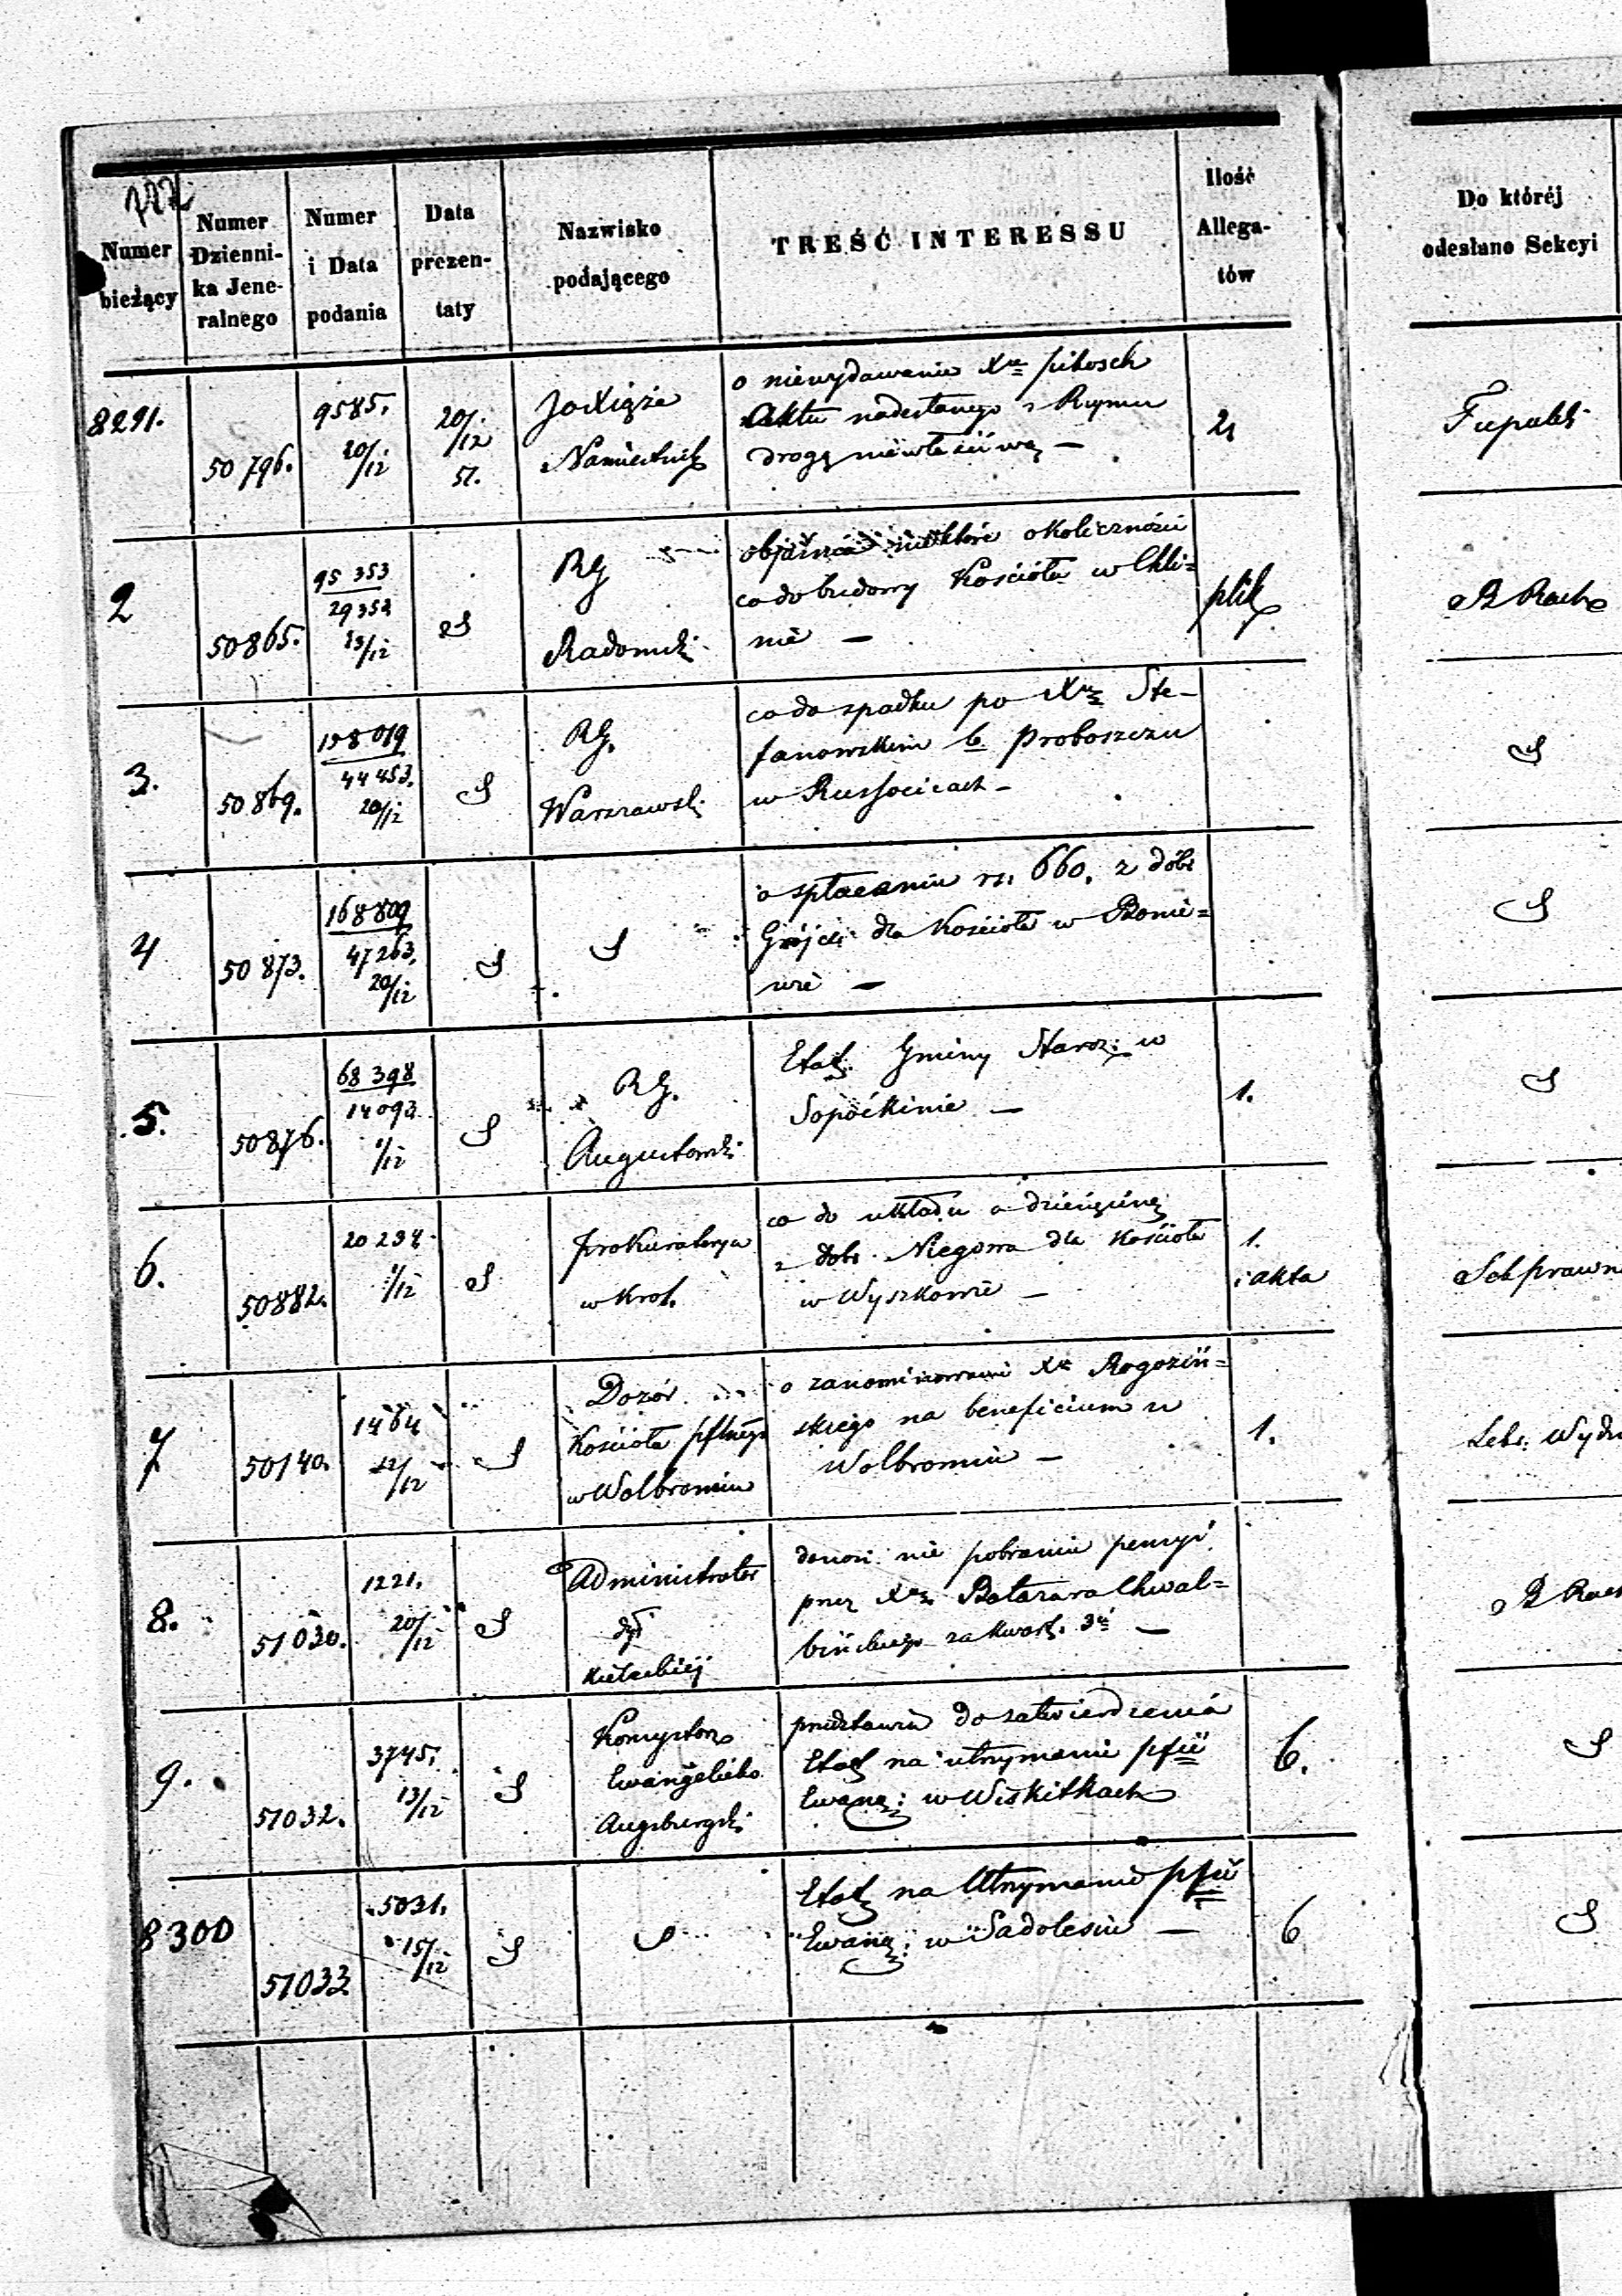 Numer bieżący
Numer Dziennika Jeneralnego
Numer i Data podania
Data prezentaty
Nazwisko podającego
TREŚĆ INTERESSU
Ilość Allegatów
Do któréj odesłano Sekcyi
8291.
50796.
9585.
20/12
20/12
51.
JO Xiąże
Namiestnik
o niewydawanie Xu
Aktu nadesłanego z Rzymu
drogą niewłaściwą —
2
50865.
95 353
29352
13/12
RG
Radomski
objaśnia niektóre okoliczności
co do budowy Kościoła w Chli=
nie —
plik
3.
50869.
158019
44453.
20/12
RG.
Warszawski
co do spadku po Xu Ste-
fanowskim b. Proboszczu
w Russocicach —
4
50873.
168809
47263.
20/12
o spłaceniu rs. 660. z dóbr
Grójec dla Kościoła w Bonie=
wie —
5.
50876.
68398
14093.
1/12
RG.
Augustowski
Etat Gminy Staroz: w
Sopoćkinie —
1.
6.
50882.
20234.
1/12
Prokuratorya
w Król.
co do układu o dziesięcinę
z dóbr Niegowa dla Kościoła
w Wyszkowie —
1.
i akta
Sek prawn
7
50140.
1464
12/12
Dozór
Kościoła pflnego
w Wolbromiu
o zanominowanie Xa Rogoziń=
skiego na beneficium w
Wolbromiu —
1.
8.
51030.
1221.
20/12
Administrator
Dyi
Kieleckiej
donosi nie pobraniu pensyi
przez Xa Baltazara Chwal=
bińskiego za kwart. 3ci —
9.
51032.
3745.
13/12
Konsystorz
Ewangelicko
Augsburgski
przedstawia do zatwierdzenia
Etat na utrzymanie pfii
Ewang: w Wiskitkach
6.
8300
51033
5031.
15/12
Etat na Utrzymanie pfii
Ewang: w Sadolesiu —
6